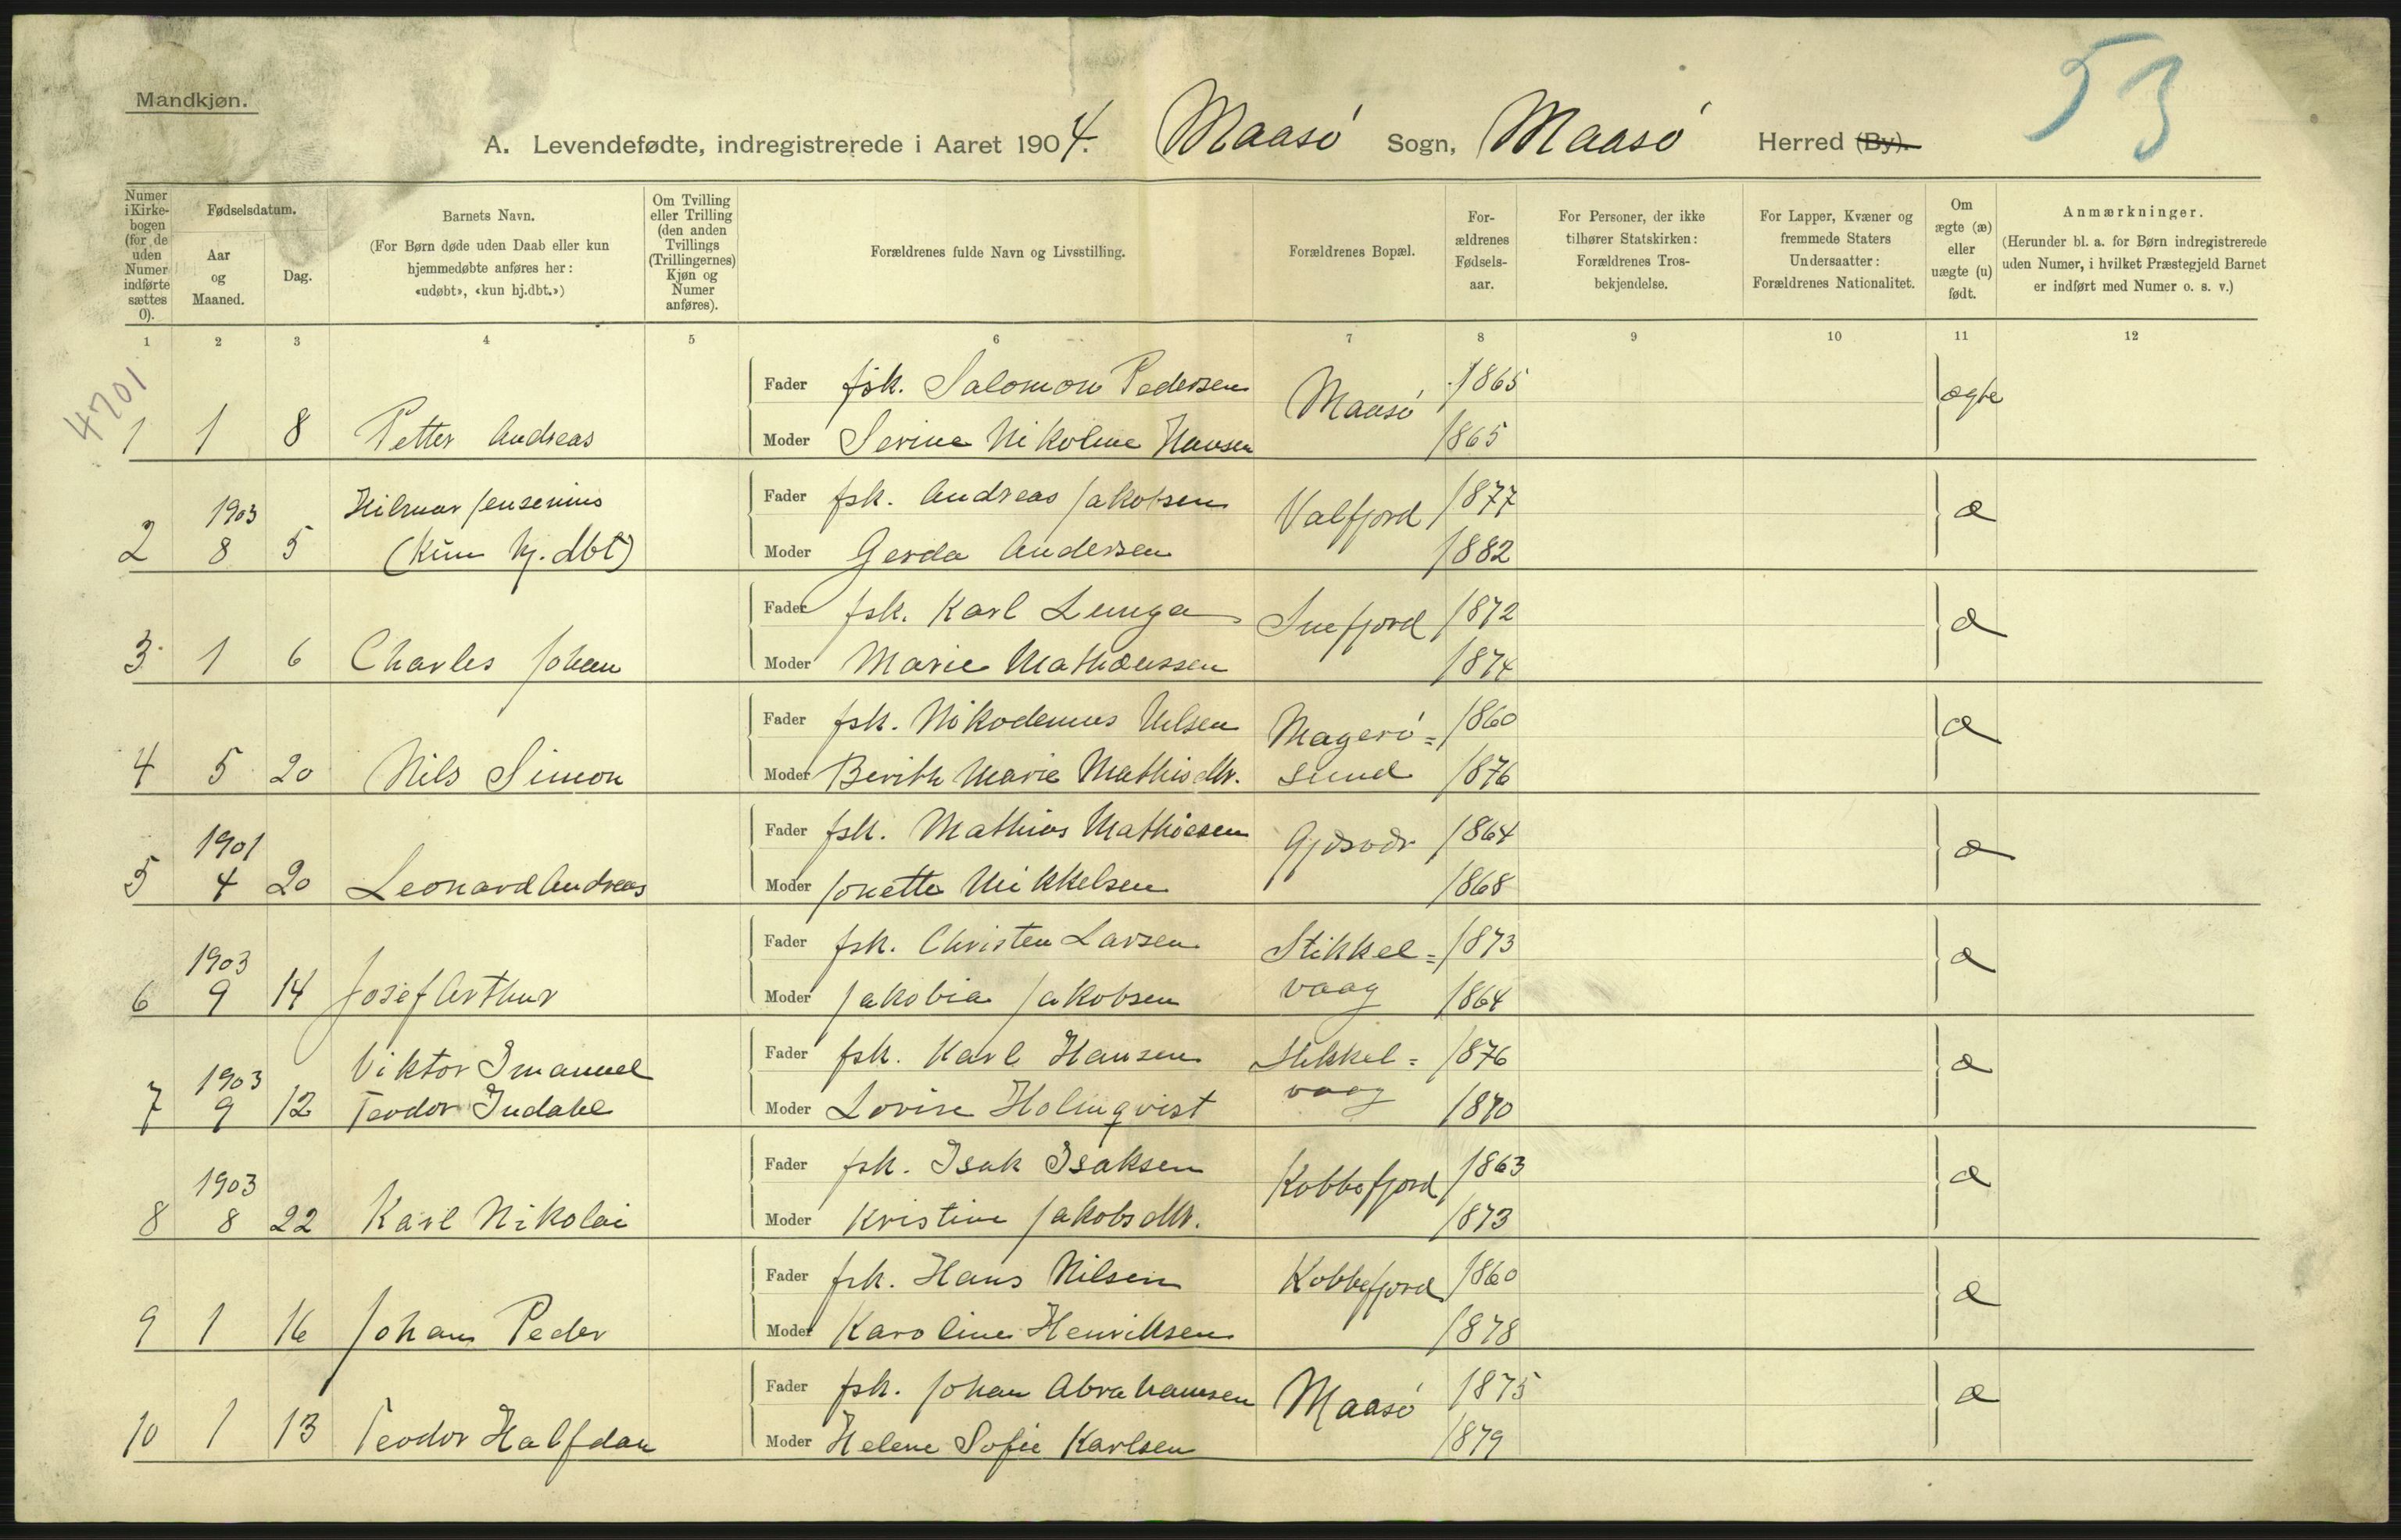 Mandkjøn.
53
A. Levendefødte, indregistrerede i Aaret 1904. Maasö Sogn, Maasö Herred (By).
Numer i Kirke-bogen (for de uden Numer indførte sættes 0).
Fødselsdatum.
Aar og Maaned.
Dag.
Barnets Navn.
(For Børn døde uden Daab eller kun hjemmedøbte anføres her: «udøbt», «kun hj.dbt.»)
Om Tvilling eller Trilling (den anden Tvillings (Trillingernes) Kjøn og Numer anføres).
Forældrenes fulde Navn og Livsstilling.
Forældrenes Bopæl.
For-ældrenes Fødsels-aar.
For Personer, der ikke tilhører Statskirken: Forældrenes Tros-bekjendelse.
For Lapper, Kvæner og fremmede Staters Undersaatter: Forældrenes Nationalitet.
Om ægte (æ) eller uægte (u) født.
Anmærkninger.
(Herunder bl. a. for Børn indregistrerede uden Numer, i hvilket Præstegjeld Barnet er indført med Numer o. s. v.)
1 2 3 4 5 6 7 8 9 10 11 12
4701
Fader fsk. Salomon Pedersen Maasö 1865 ægte
1 1 8 Petter Andreas Moder Serine Nikoline Hansen 1865
1903 Hilmar Jensenius Fader fsk. Andreas Jakobsen Valfjord 1877 æ
2 8 5 (kun hj. dbt) Moder Gerda Andersen 1882
Fader fsk. Karl Lunga Snefjord 1872 æ
3 1 6 Charles Johan Moder Marie Mathæussen 1874
Fader fsk. Nikodemus Nilsen Magerö= 1860 æ
4 5 20 Nils Simon Moder Berith Marie Mathisdtr. sund 1876
1901 Fader fsk. Mathias Mathisen Gjæsvær 1864 æ
5 4 20 Leonard Andreas Moder Jonette Mikkelsen 1868
1903 Fader fsk. Christen Larsen Stikkel= 1873 æ
6 9 14 Josef Arthur Moder Jakobia Jakobsen vaag 1864
1903 Viktor Imanuel Fader fsk. Karl Hansen Stikkel= 1876 æ
7 9 12 Teodor Indahl Moder Lovise Holmqvist vaag 1870
1903 Fader fsk. Isak Isaksen Kobbefjord 1863 æ
8 8 22 Karl Nikolai Moder Kristine Jakobsdtr. 1873
Fader fsk. Hans Nilsen Kobbefjord 1860 æ
9 1 16 Johan Peder Moder Karoline Henriksen 1878
Fader fsk. Johan Abrahamsen Maasö 1875 æ
10 1 13 Teodor Halfdan Moder Helene Sofie Karlsen 1879